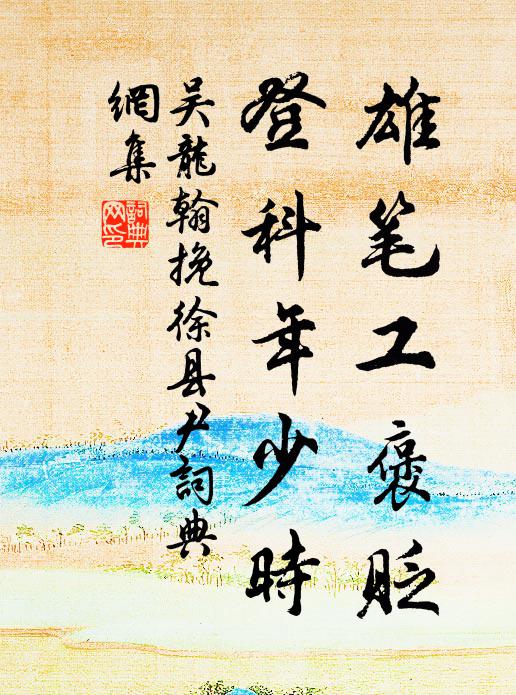 雄笔工褒贬
登科年少時
吴龍翰挽徐县尹詞典
網集
詞典
网印